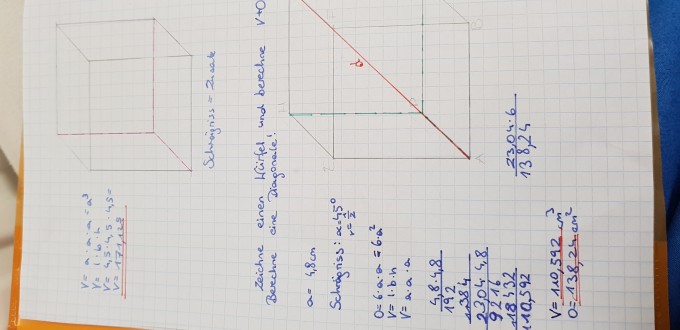 V = a · a · a = a³
V = l · b · h
V = 4,5 · 4,5 · 4,5 =
V =
Schrägriss =
Zeichne einen Würfel und berechne V+O
Berechne eine Diagonale!
a = 4,8cm
Schrägriss: α=45°
v=½
O=6·a·a=6·a²
V= l·b·h
V= a·a·a
4,8·4,8
192
384
23,04·4,8
9216
18432
110,592
23,04·6
138,24
V= 110,592 cm³
O= 138,24 cm²
d
A
E